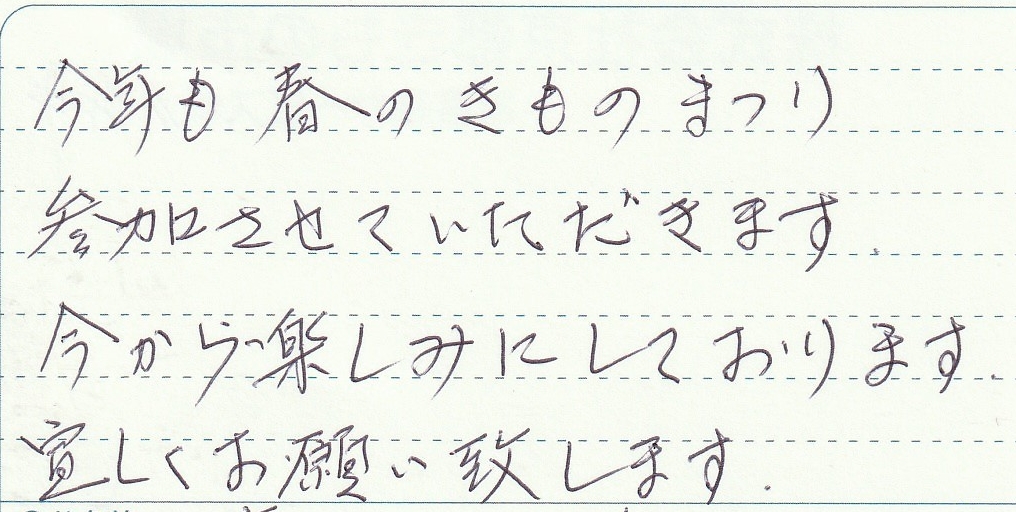 今年も春のきものまつり
参加させていただきます.
今から楽しみにしております.
宜しくお願い致します.